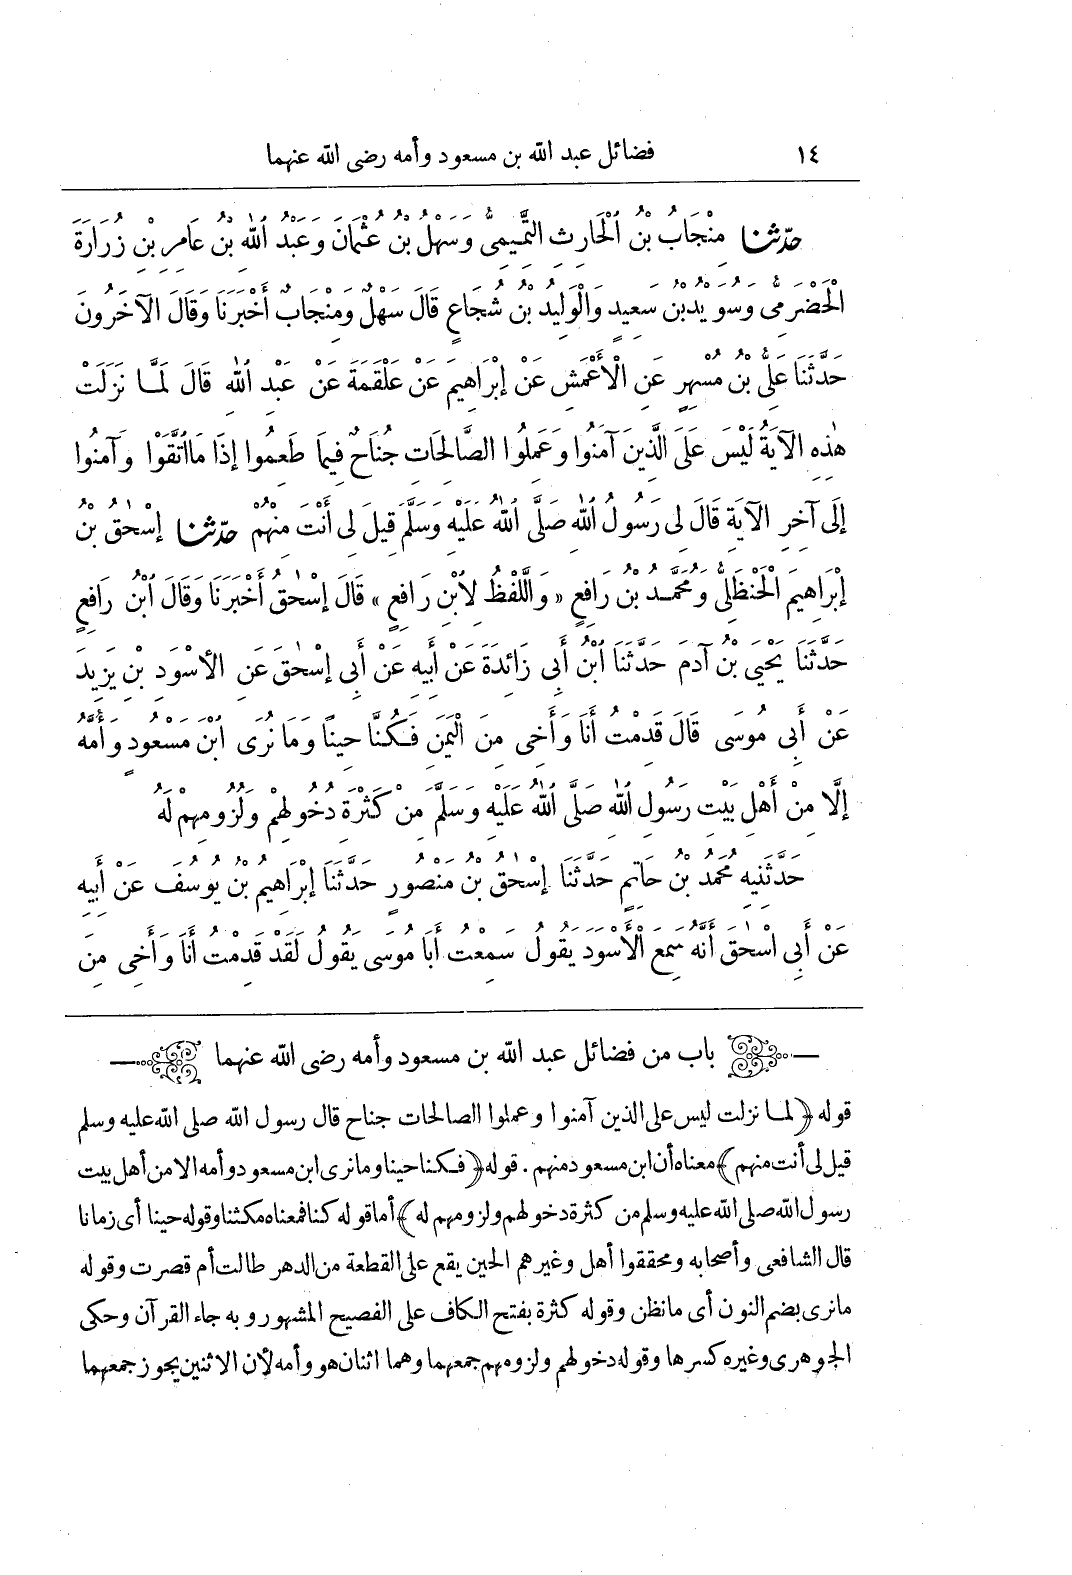 ١٤ فضائل عبد الله بن مسعود وأمه رضى الله عنهما
حدّثنا مِنْجَابُ بْنُ الْحَارِثِ التَّمِيمِىُّ وَسَهْلُ بْنُ عُثْمَانَ وَعَبْدُ اللهِ بْنُ عَامِرِ بْنِ زُرَارَةَ
الْحَضْرَمِىُّ وَسُوَيْدُ بْنُ سَعِيدٍ وَالْوَلِيدُ بْنُ شُجَاعٍ قَالَ سَهْلٌ وَمِنْجَابٌ أَخْبَرَنَا وَقَالَ الْآخَرُونَ
حَدَّثَنَا عَلِىُّ بْنُ مُسْهِرٍ عَنِ الْأَعْمَشِ عَنْ إِبْرَاهِيمَ عَنْ عَلْقَمَةَ عَنْ عَبْدِ اللهِ قَالَ لَمَّا نَزَلَتْ
هٰذِهِ الْآيَةُ لَيْسَ عَلَى الَّذِينَ آمَنُوا وَعَمِلُوا الصَّالِحَاتِ جُنَاحٌ فِيمَا طَعِمُوا إِذَا مَا اتَّقَوْا وَآمَنُوا
إِلَى آخِرِ الْآيَةِ قَالَ لِى رَسُولُ اللهِ صَلَّى اللهُ عَلَيْهِ وَسَلَّمَ قِيلَ لِى أَنْتَ مِنْهُمْ حدّثنا إِسْحٰقُ بْنُ
إِبْرَاهِيمَ الْحَنْظَلِىُّ وَمُحَمَّدُ بْنُ رَافِعٍ « وَاللَّفْظُ لِابْنِ رَافِعٍ » قَالَ إِسْحٰقُ أَخْبَرَنَا وَقَالَ ابْنُ رَافِعٍ
حَدَّثَنَا يَحْيَى بْنُ آدَمَ حَدَّثَنَا ابْنُ أَبِى زَائِدَةَ عَنْ أَبِيهِ عَنْ أَبِى إِسْحٰقَ عَنِ الْأَسْوَدِ بْنِ يَزِيدَ
عَنْ أَبِى مُوسَى قَالَ قَدِمْتُ أَنَا وَأَخِى مِنَ الْيَمَنِ فَكُنَّا حِينًا وَمَا نُرَى ابْنَ مَسْعُودٍ وَأُمَّهُ
إِلَّا مِنْ أَهْلِ بَيْتِ رَسُولِ اللهِ صَلَّى اللهُ عَلَيْهِ وَسَلَّمَ مِنْ كَثْرَةِ دُخُولِهِمْ وَلُزُومِهِمْ لَهُ
حَدَّثَنِيهِ مُحَمَّدُ بْنُ حَاتِمٍ حَدَّثَنَا إِسْحٰقُ بْنُ مَنْصُورٍ حَدَّثَنَا إِبْرَاهِيمُ بْنُ يُوسُفَ عَنْ أَبِيهِ
عَنْ أَبِى إِسْحٰقَ أَنَّهُ سَمِعَ الْأَسْوَدَ يَقُولُ سَمِعْتُ أَبَا مُوسَى يَقُولُ لَقَدْ قَدِمْتُ أَنَا وَأَخِى مِنَ
باب من فضائل عبد الله بن مسعود وأمه رضى الله عنهما
قوله ﴿لما نزلت ليس على الذين آمنوا وعملوا الصالحات جناح قال رسول الله صلى الله عليه وسلم
قيل لى أنت منهم﴾ معناه أن ابن مسعود منهم . قوله ﴿فكنا حينا وما نرى ابن مسعود وأمه الا من أهل بيت
رسول الله صلى الله عليه وسلم من كثرة دخولهم ولزومهم له﴾ أما قوله كنا فمعناه مكثنا وقوله حينا أى زمانا
قال الشافعى وأصحابه ومحققوا أهل وغيرهم الحين يقع على القطعة من الدهر طالت أم قصرت وقوله
ما نرى بضم النون أى ما نظن وقوله كثرة بفتح الكاف على الفصيح المشهور و به جاء القرآن وحكى
الجوهرى وغيره كسرها وقوله دخولهم ولزومهم جمعهما وهما اثنان هو وأمه لأن الاثنين يجوز جمعهما